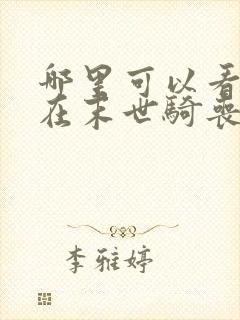 哪里可以看
在末世騎喪
李雅婷